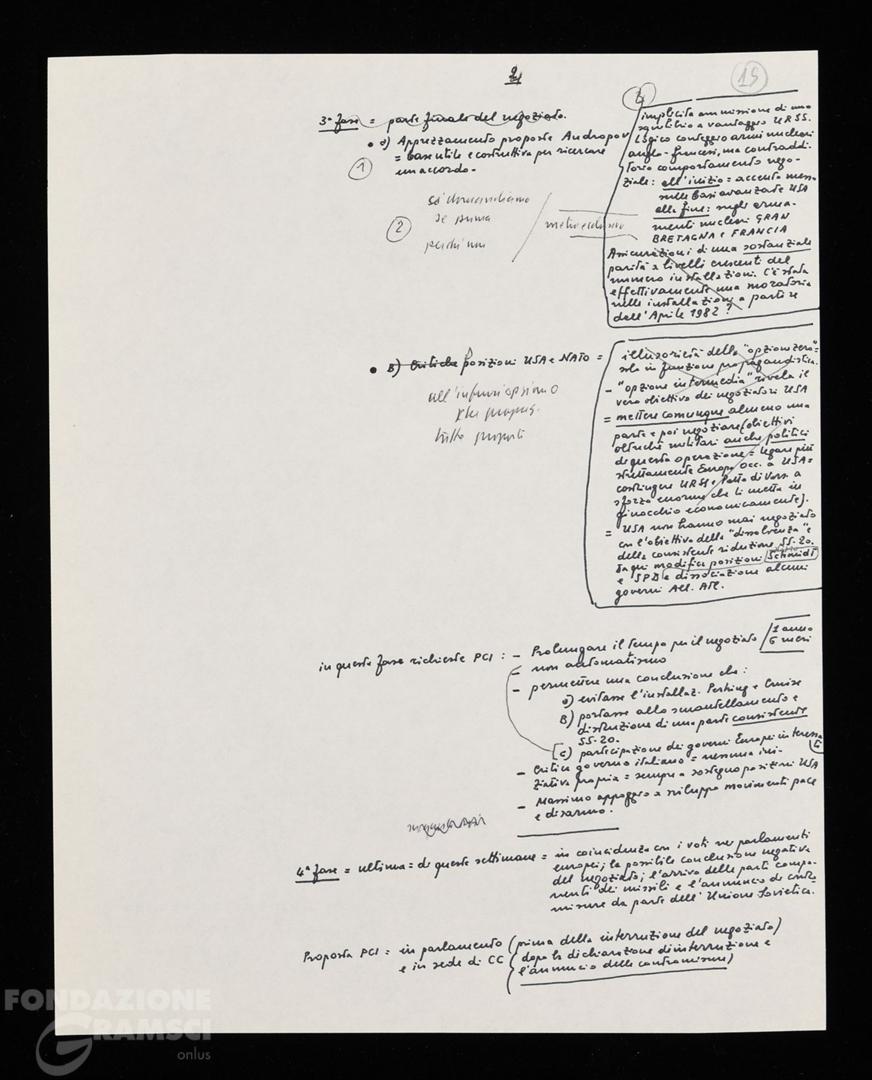 2
15
3ª fase = parte finale del negoziato.
a) Apprezzamento proposte Andropov
= base utile e costruttiva per ricercare
un accordo.
1
2
se prima
perché non
4
implicita ammissione di uno
squilibrio a vantaggio URSS.
Logico conteggio armi nucleari
anglo-francesi, ma contraddi-
torio comportamento nego-
ziale: all'inizio = accento messo
sulle basi avanzate USA
alla fine: sugli arma-
menti nucleari GRAN
BRETAGNA e FRANCIA
Assicurazioni di una sostanziale
parità a livelli crescenti del
numero installazioni. C'è stata
effettivamente una moratoria
nelle installazioni a partire
dall'Aprile 1982?
B) Critiche posizioni USA e NATO =
all'inizio opzione 0
tutto
illusorietà della "opzione zero"=
solo in funzione propagandistica.
- "opzione intermedia" rivela il
vero obiettivo dei negoziatori USA
= mettere comunque almeno una
parte e poi negoziare (obiettivi
oltreché militari anche politici
di questa operazione = legare più
strettamente Europa Occ. a USA=
costringere URSS e Patto di Vars. a
sforzo enorme che li metta in
ginocchio economicamente).
= USA non hanno mai negoziato
con l'obiettivo della "dissolvenza" e
della consistente riduzione SS-20.
Da qui modifica posizioni Schmidt
e SPD e dissociazione alcuni
governi All. Atl.
in questa fase richieste PCI: - Prolungare il tempo per il negoziato / 1 anno
6 mesi
- non automatismo
- permettere una conclusione che:
a) evitasse l'installaz. Pershing e Cruise
B) portasse allo smantellamento e
distruzione di una parte consistente
SS-20.
c) partecipazione dei governi Europei interessati
- Critica governo italiano = nessuna ini-
ziativa propria = sempre a sostegno posizioni USA
- Massimo appoggio a sviluppo movimenti pace
e disarmo.
4ª fase = ultima = di queste settimane = in coincidenza con i voti nei parlamenti
europei; la possibile conclusione negativa
del negoziato; l'arrivo delle parti compo-
nenti dei missili e l'annuncio di contro
misure da parte dell'Unione Sovietica.
Proposta PCI = in parlamento (prima della interruzione del negoziato)
e in sede di CC (dopo la dichiarazione di interruzione e
l'annuncio delle contromisure)
FONDAZIONE
GRAMSCI
onlus